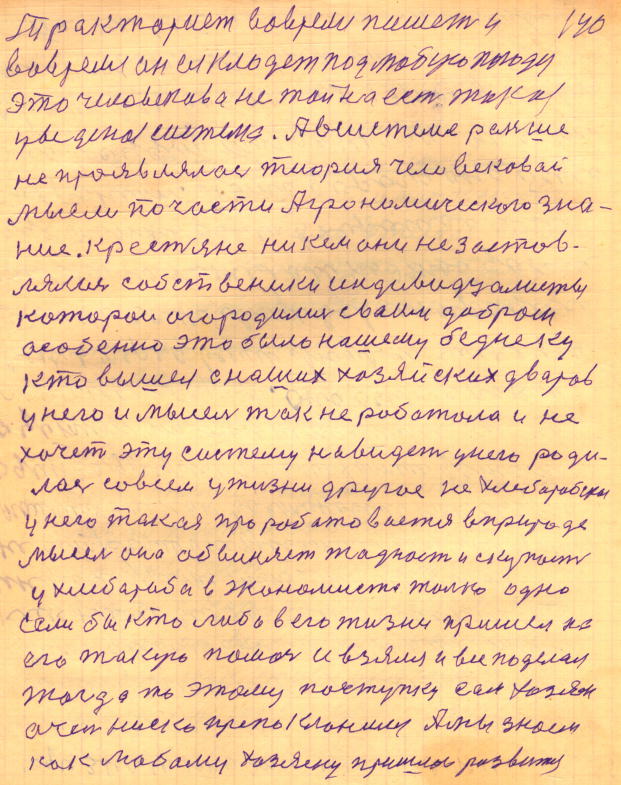 Тракторист вовремя пишет и 190
вовремя он складет под любую погоду
это человекова не тайна ест. така(
уведена система. А в системе раньше
не проявлялас тиория человековай
мысли по части Агрономического зна-
ние. крестяне никем они не застов-
лялися собственики индивидуалисты
которои огородилис сваим добром
особенно это было нашему беднеку
кто вышел с наших хозяйских дваров
у него и мысел так не работола и не
хочет эту систему навидет унего роди-
лас совсем ужизни другое не хлебарабски
унего такая проработовается вприроде
мысел она обвиняет жадност и скупост
у хлебараба в экономисте толко одно
если бы кто либо вего жизни пришел на
его такую помощ и взялся и все поделал
тогда по этому поступку сам хозяен
очен ниско преклонилс А мы знаем
как любому хозяену пришлос развитц